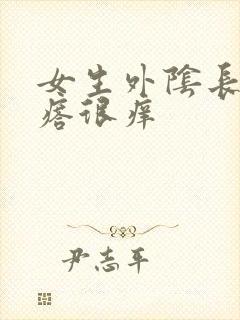 女生外陰長
痞很癢
尹志平